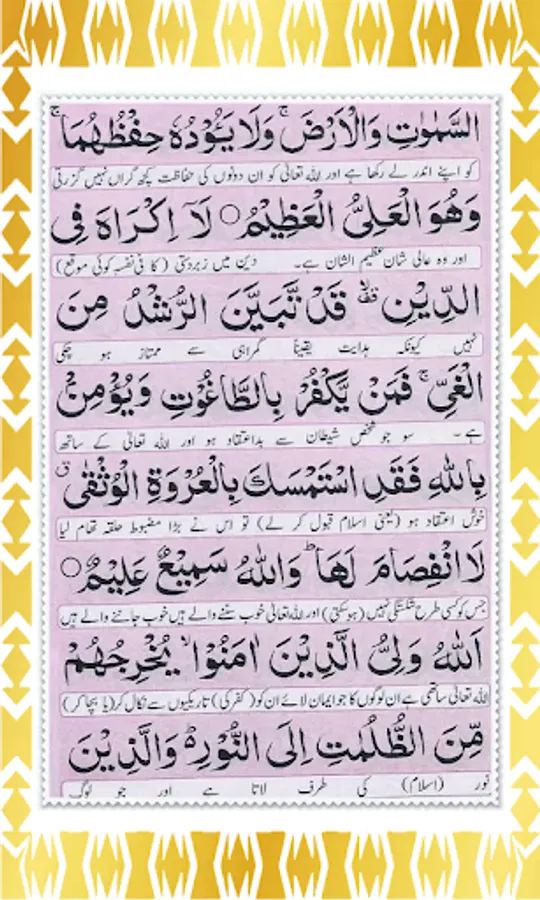 السَّمٰوٰتِ وَالْاَرْضَ ۚ وَلَا يَـُٔوْدُهٗ حِفْظُهُمَا ۚ
کو اپنے اندر لے رکھا ہے اور اللہ تعالیٰ کو ان دونوں کی حفاظت کچھ گراں نہیں گزرتی
وَهُوَ الْعَلِىُّ الْعَظِيْمُ ○ لَآ اِكْرَاهَ فِى
اور وہ عالی شان عظیم الشان ہے۔ دین میں زبردستی (کا فی نفسہٖ کوئی موقع)
الدِّيْنِ ۙ قَدْ تَّبَيَّنَ الرُّشْدُ مِنَ
نہیں کیونکہ ہدایت یقیناً گمراہی سے ممتاز ہو چکی
الْغَىِّ ۚ فَمَنْ يَّكْفُرْ بِالطَّاغُوْتِ وَيُؤْمِنْۢ
ہے۔ سو جو شخص شیطان سے بداعتقاد ہو اور اللہ تعالیٰ کے ساتھ
بِاللّٰهِ فَقَدِ اسْتَمْسَكَ بِالْعُرْوَةِ الْوُثْقٰى ق
خوش اعتقاد ہو (یعنی اسلام قبول کر لے) تو اس نے بڑا مضبوط حلقہ تھام لیا
لَا انْفِصَامَ لَهَا ؕ وَاللّٰهُ سَمِيْعٌ عَلِيْمٌ ○
جس کو کسی طرح شکستگی نہیں (ہو سکتی) اور اللہ تعالیٰ خوب سننے والے ہیں خوب جاننے والے ہیں
اَللّٰهُ وَلِىُّ الَّذِيْنَ اٰمَنُوْا ۙ يُخْرِجُهُمْ
اللہ تعالیٰ ساتھی ہے ان لوگوں کا جو ایمان لائے ان کو (کفر کی) تاریکیوں سے نکال کر (یا بچا کر)
مِّنَ الظُّلُمٰتِ اِلَى النُّوْرِ ؕ وَالَّذِيْنَ
نور (اسلام) کی طرف لاتا ہے اور جو لوگ